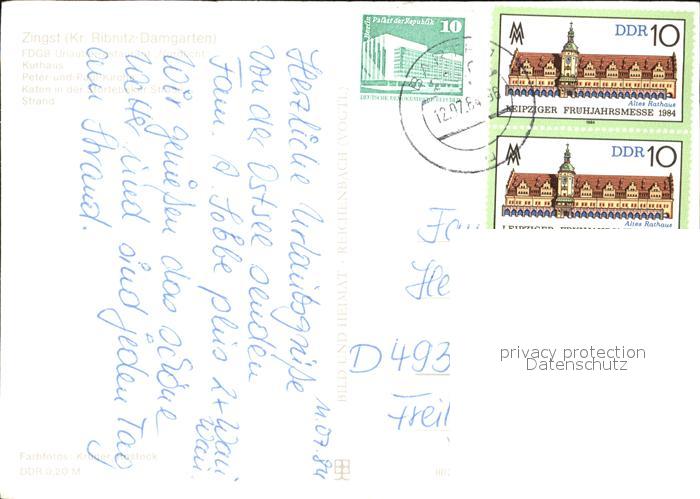 Zingst (Kr. Ribnitz-Damgarten)
FDGB Urlauber
Kurhaus
Peter-und-Paul-Kirche
Katen in der
Strand
Herzliche Urlaubsgrüße
von der Ostsee senden
Fam. A. Sobbe plus 2x Wau
Wau.
Wir genießen das schöne
und sind jeden Tag
am Strand.
11.07.84
BILD UND HEIMAT · REICHENBACH (VOGTL)
Farbfotos: Krüger, Rostock
DDR 0,20 M
Berlin Palast der Republik 10
DEUTSCHE DEMOKRATISCHE REPUBLIK
12.07.84
DDR 10
Altes Rathaus
LEIPZIGER FRÜHJAHRSMESSE 1984
1984
DDR 10
Altes Rathaus
LEIPZIGER
Fa
He
D 493
Frei
privacy protection
Datenschutz